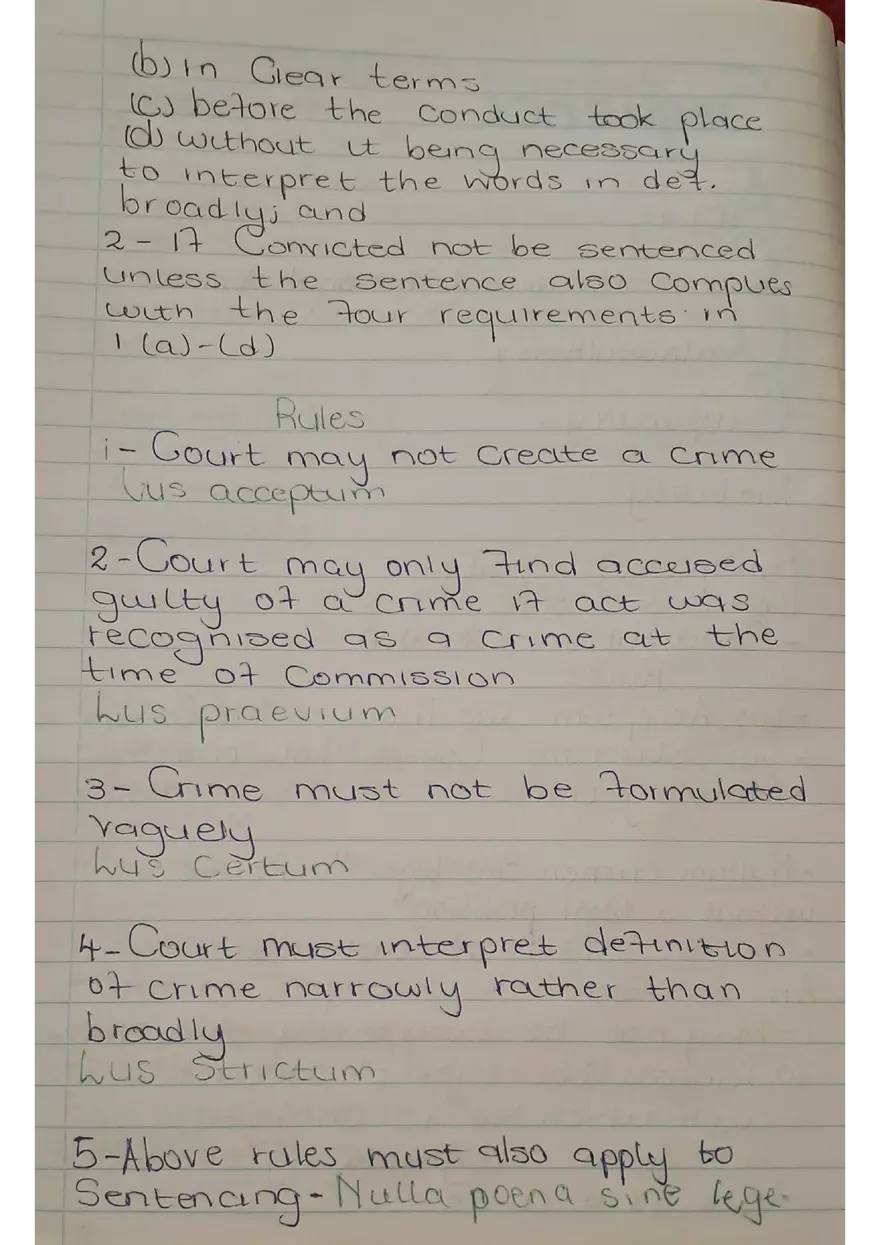 (b) in Clear terms
(c) before the conduct took place
(d) without it being necessary
to interpret the words in def.
broadly; and
2 - If Convicted not be sentenced
unless the sentence also Complies
with the four requirements in
1 (a)-(d)
Rules
1 - Court may not create a crime
Ius acceptum
2 - Court may only find accused
guilty of a crime if act was
recognised as a crime at the
time of Commission
Ius praevium
3 - Crime must not be formulated
vaguely
Ius Certum
4 - Court must interpret definition
of crime narrowly rather than
broadly
Ius Strictum
5 - Above rules must also apply to
Sentencing - Nulla poena sine lege.